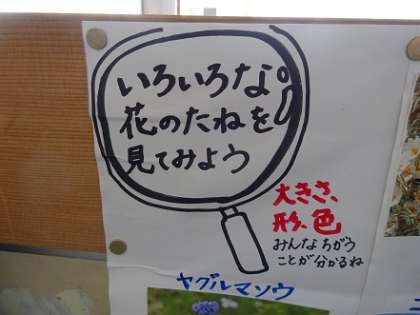 いろいろな
花のたねを
見てみよう
大きさ、
形、色
みんなちがう
ことが分かるね
ヤグルマソウ